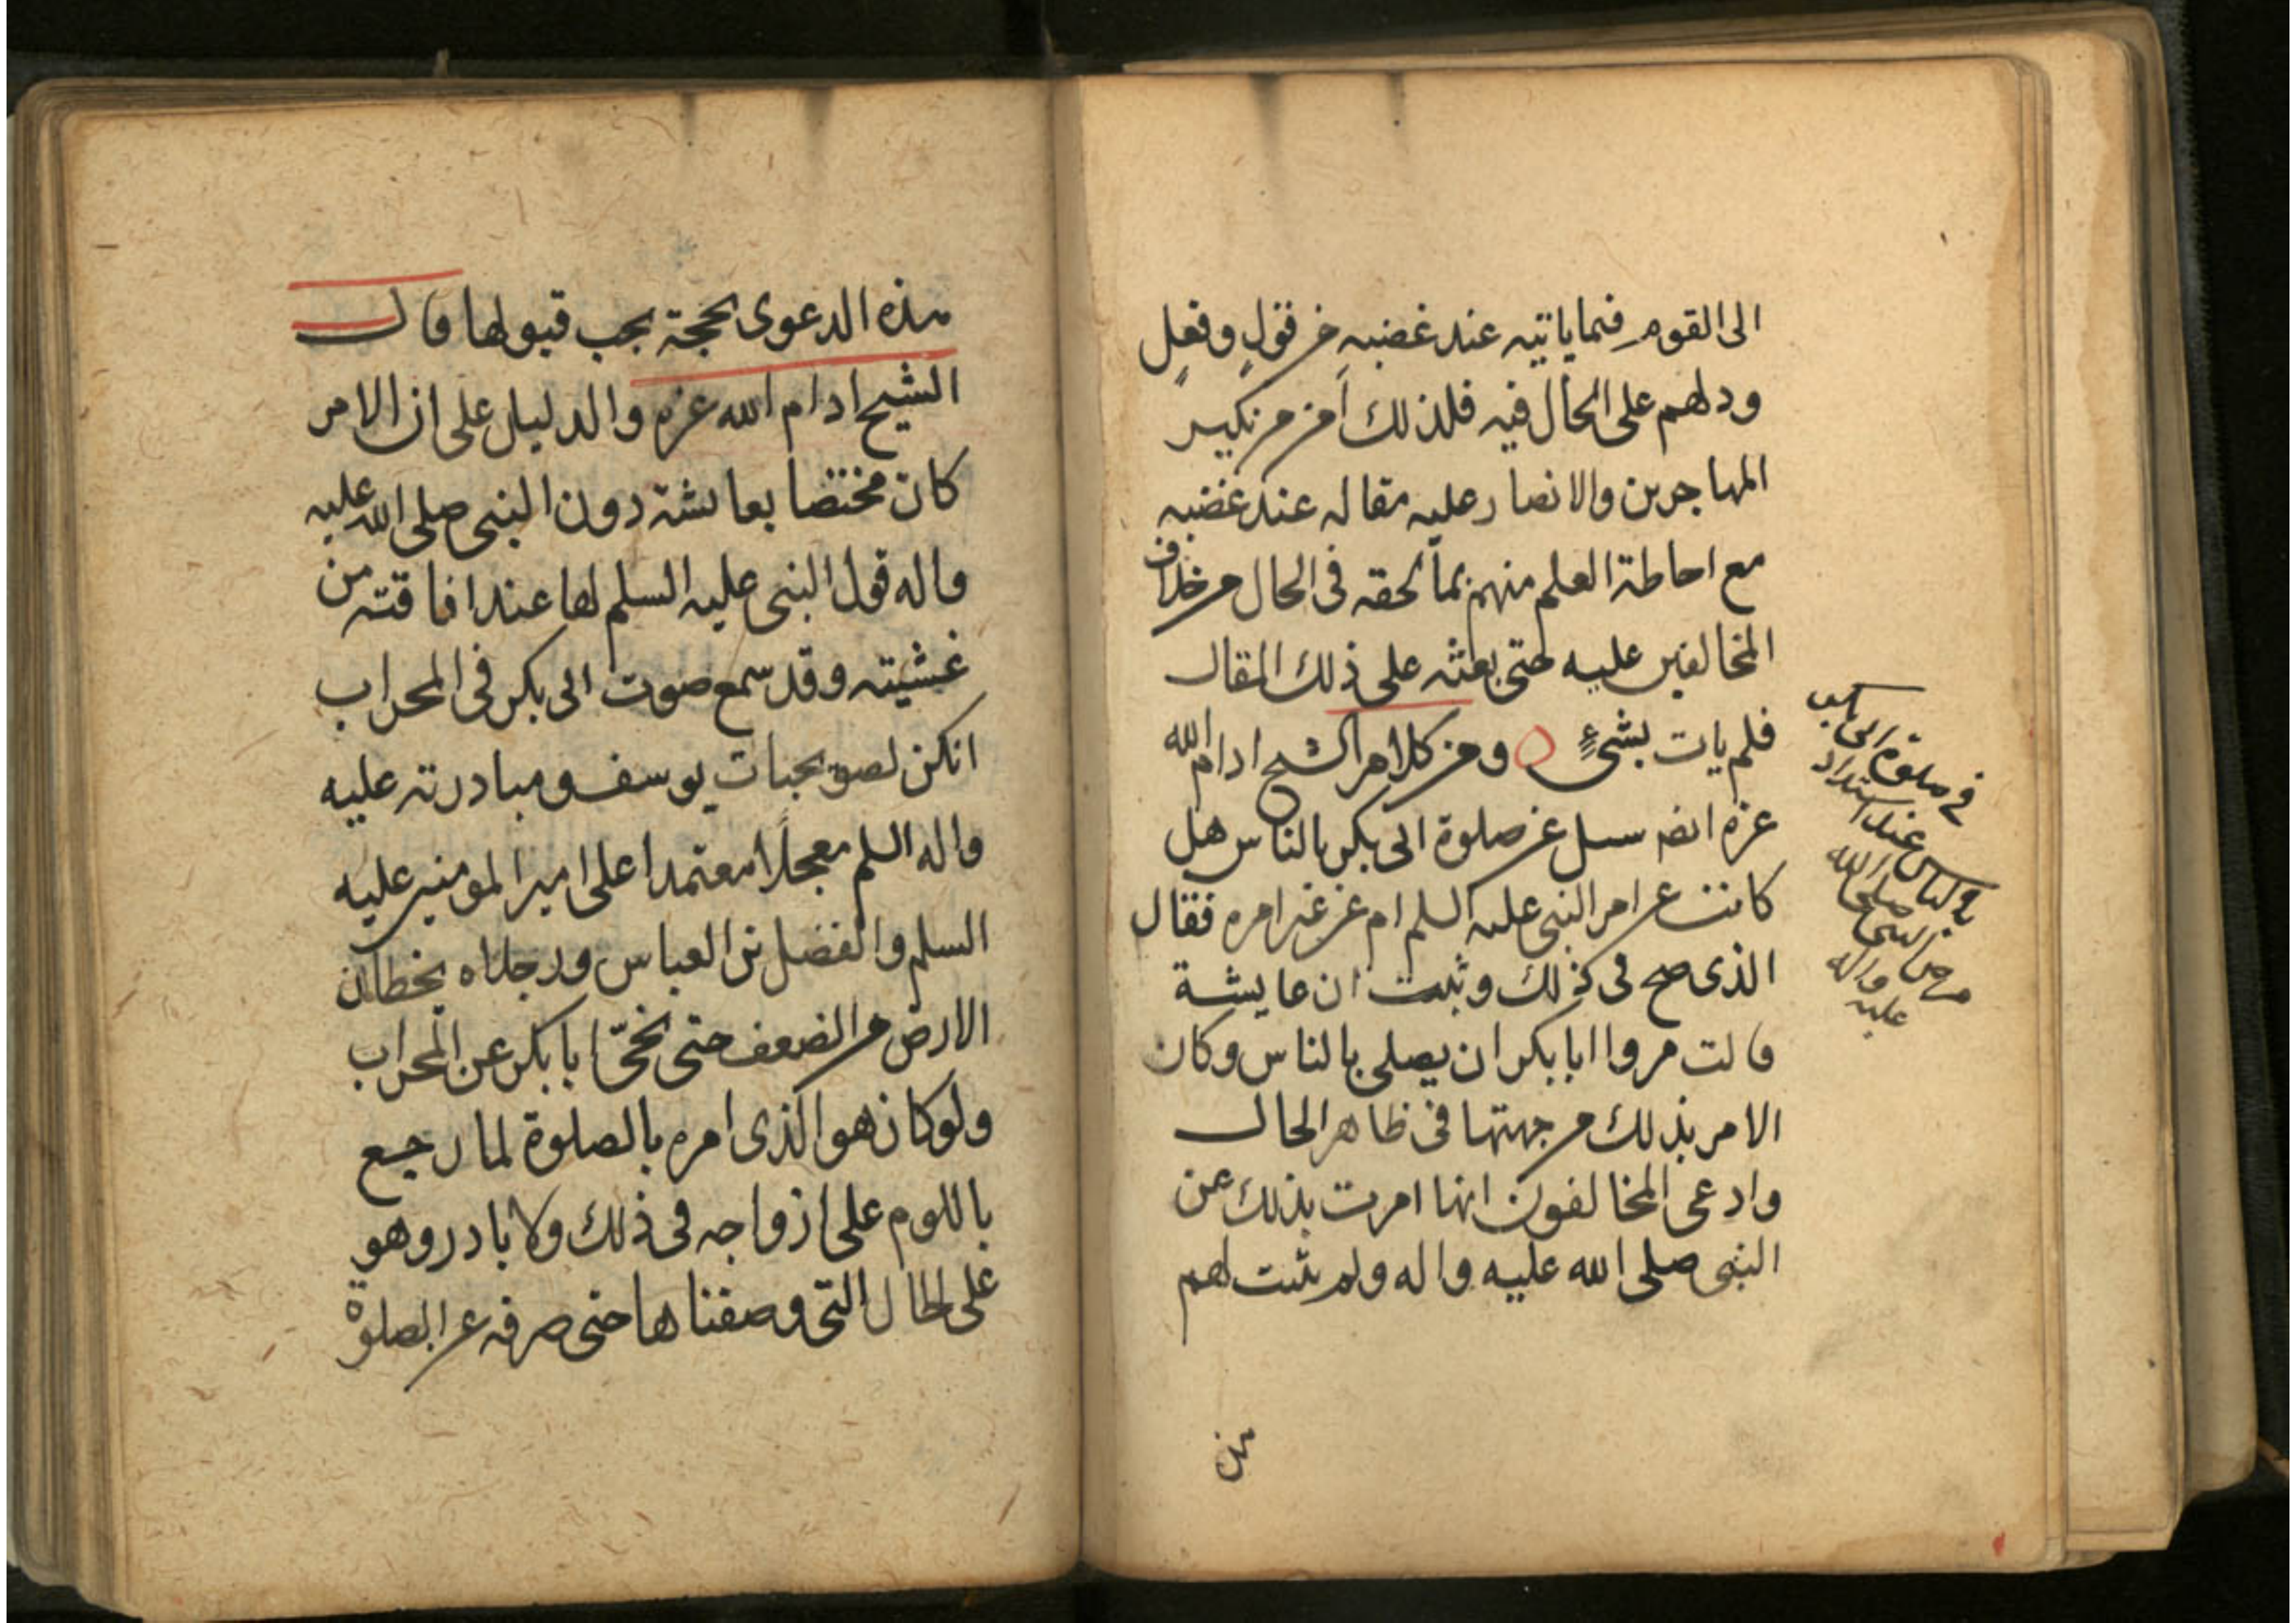 الى القوم فيما ياتيه عند غضبه من قول وفعل
ودلهم على الحال فيه فلذلك أمن من نكير
المهاجرين والانصار عليه مقاله عند غضبه
مع احاطة العلم منهم بما لحقه فى الحال من خلاف
المخالفين عليه حتى بعثه على ذلك المقال
فلم يات بشئٍ ومن كلام الشيخ ادام الله
عزه انه سىل عن صلوة ابى بكر بالناس هل
كانت عن امر النبى عليه السلم ام عن غير امره فقال
الذى صح فى ذلك وثبت ان عايشة
قالت مروا ابا بكر ان يصلى بالناس وكان
الامر بذلك من جهتها فى ظاهر الحال
وادعى المخالفون انها امرت بذلك عن
النبى صلى الله عليه واله ولم يثبت لهم
فى صلوة ابى بكر
بالناس عند اشتداد
مرض النبى صلى الله
عليه واله
هذه الدعوى بحجة يجب قبولها قال
الشيخ ادام الله عزه والدليل على ان الامر
كان مختصا بعائشة دون النبى صلى الله عليه
واله قول النبى عليه السلم لها عند افاقته من
غشيته وقد سمع صوت ابى بكر فى المحراب
انكن لصويحبات يوسف ومبادرته عليه
واله السلم معجلا معتمدا على امير المومنين عليه
السلم والفضل بن العباس ورجلاه يخطان
الارض من الضعف حتى نحّى ابا بكر عن المحراب
ولو كان هو الذى امره بالصلوة لما رجع
باللوم على ازواجه فى ذلك ولا بادر وهو
على الحال التى وصفناها حتى صرفه عن الصلوة